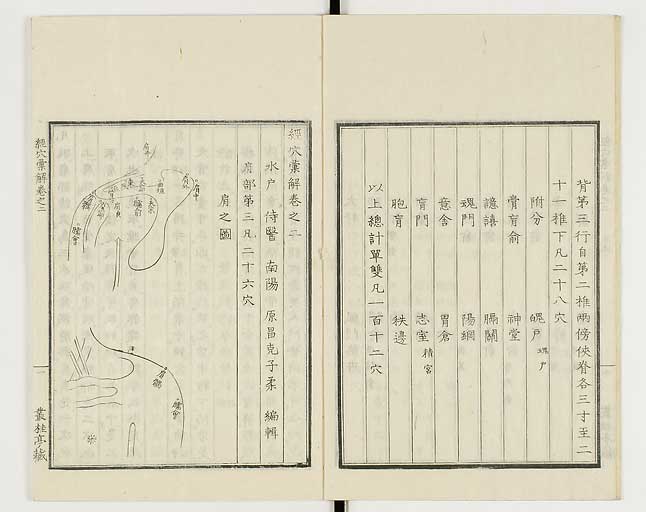 背第三行自第二椎兩傍俠脊各三寸至二
十一椎下凡二十八穴
附分 魄戶 魂戶
膏肓俞 神堂
譩譆 膈關
魂門 陽綱
意舍 胃倉
肓門 志室 精宮
胞肓 秩邊
以上總計單雙凡一百十二穴
經穴彙解卷之三
水戶 侍醫 南陽 原昌克子柔 編輯
肩部第三凡二十六穴
肩之圖
肩中
肩外
臑會
肩髃
臑會
經穴彙解卷之三
叢桂亭藏